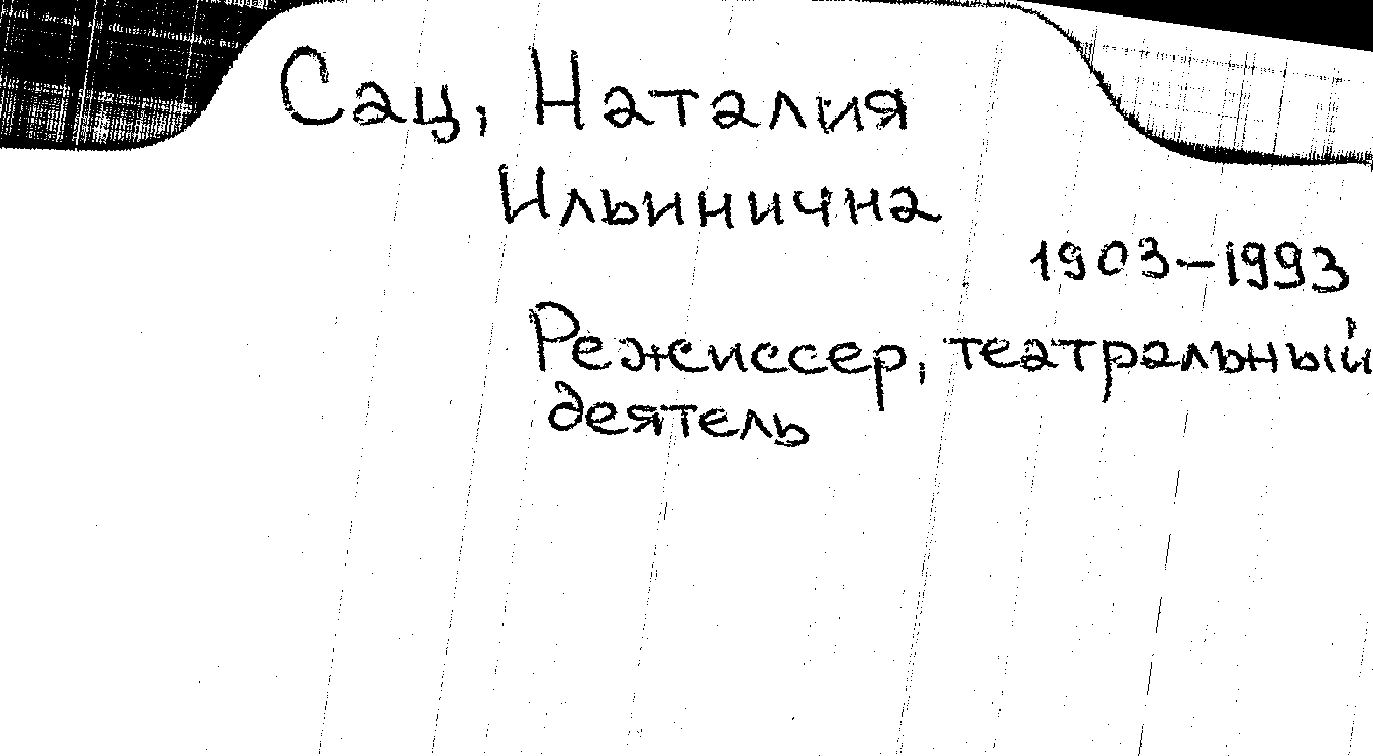 Сац, Наталия
Ильинична
1903-1993
Режиссер, театральный
деятель